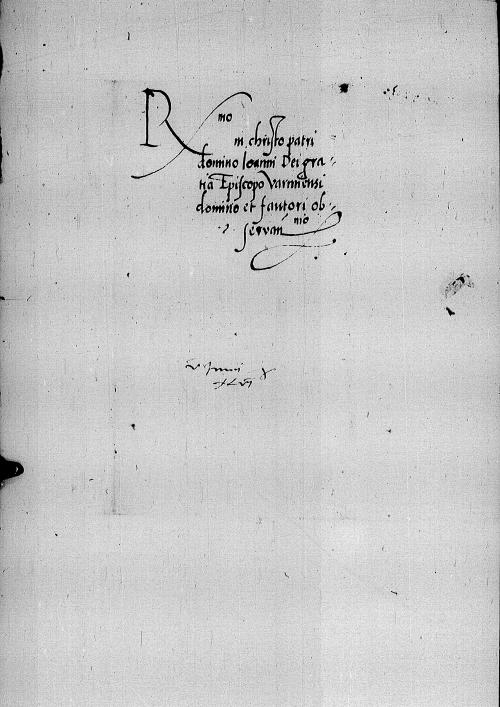 R mo
in christo patri
domino Ioanni Dei gra-
tia Episcopo Varmiensi
domino et fautori ob-
servan mo
Junii
XLVI